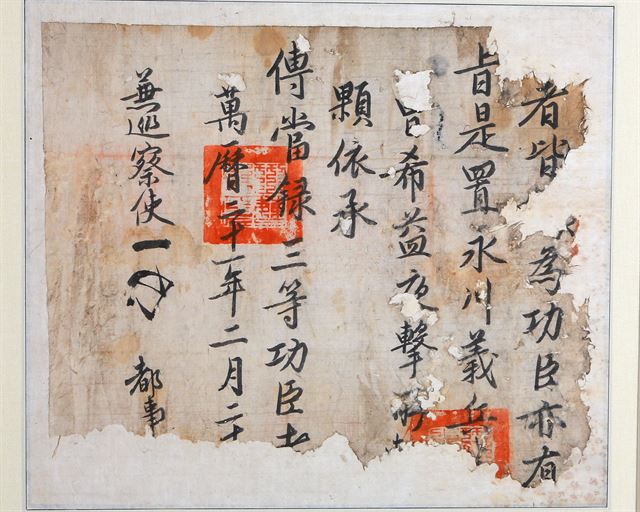 者皆 為功臣亦有
旨是置永川義兵
曺希益夜擊斬
顆依承
傳當錄三等功臣者
萬曆二十一年二月二十
兼巡察使 都事